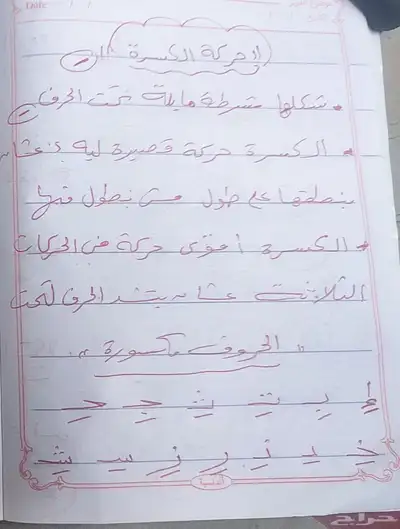 Date:
حركة الكسرة
• شكلها شرطة مايلة تحت الحرف
• الكسرة حركة قصيرة ليه؟ عشان
بنطقها على طول مش بنطول فيها
• الكسرة أقوى حركة من الحركات
الثلاثة عشان بتشد الحرف لتحت
" الحروف مكسورة "
إِ بِ تِ ثِ جِ حِ
خِ دِ ذِ رِ زِ سِ شِ
حراج